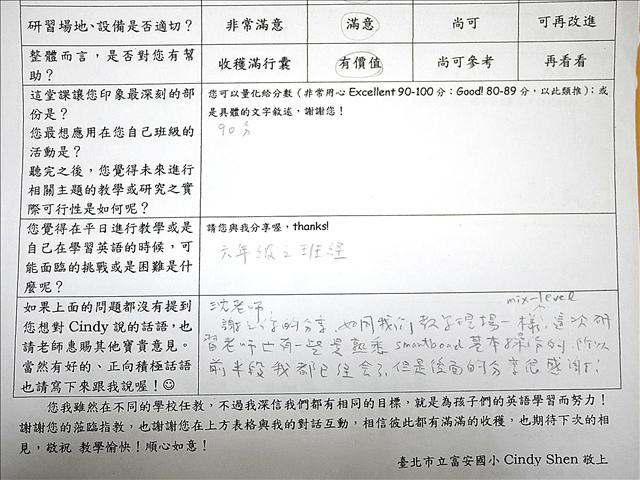 研習場地、設備是否適切？ 非常滿意 滿意 尚可 可再改進
整體而言，是否對您有幫助？ 收穫滿行囊 有價值 尚可參考 再看看
這堂課讓您印象最深刻的部
份是？
您最想應用在您自己班級的
活動是？
聽完之後，您覺得未來進行
相關主題的教學或研究之實
際可行性是如何呢？
您可以量化給分數（非常用心 Excellent 90-100 分；Good! 80-89 分，以此類推）；或
是具體的文字敘述，謝謝您！
90分
您覺得在平日進行教學或是
自己在學習英語的時候，可
能面臨的挑戰或是困難是什
麼呢？
請您與我分享喔，thanks!
六年級之班經
如果上面的問題都沒有提到
您想對 Cindy 說的話語，也
請老師惠賜其他寶貴意見。
當然有好的、正向積極話語
也請寫下來跟我說喔！☺
沈老師，
mix-level
謝謝您的分享，如同我們教學現場一樣，這次研
習老師也有一些是熟悉 smartboad 基本操作的，所以
前半段我都已經會了，但是後面的分享很感謝！
您我雖然在不同的學校任教，不過我深信我們都有相同的目標，就是為孩子們的英語學習而努力！
謝謝您的蒞臨指教，也謝謝您在上方表格與我的對話互動，相信彼此都有滿滿的收穫，也期待下次的相
見，敬祝 教學愉快！順心如意！
臺北市立富安國小 Cindy Shen 敬上